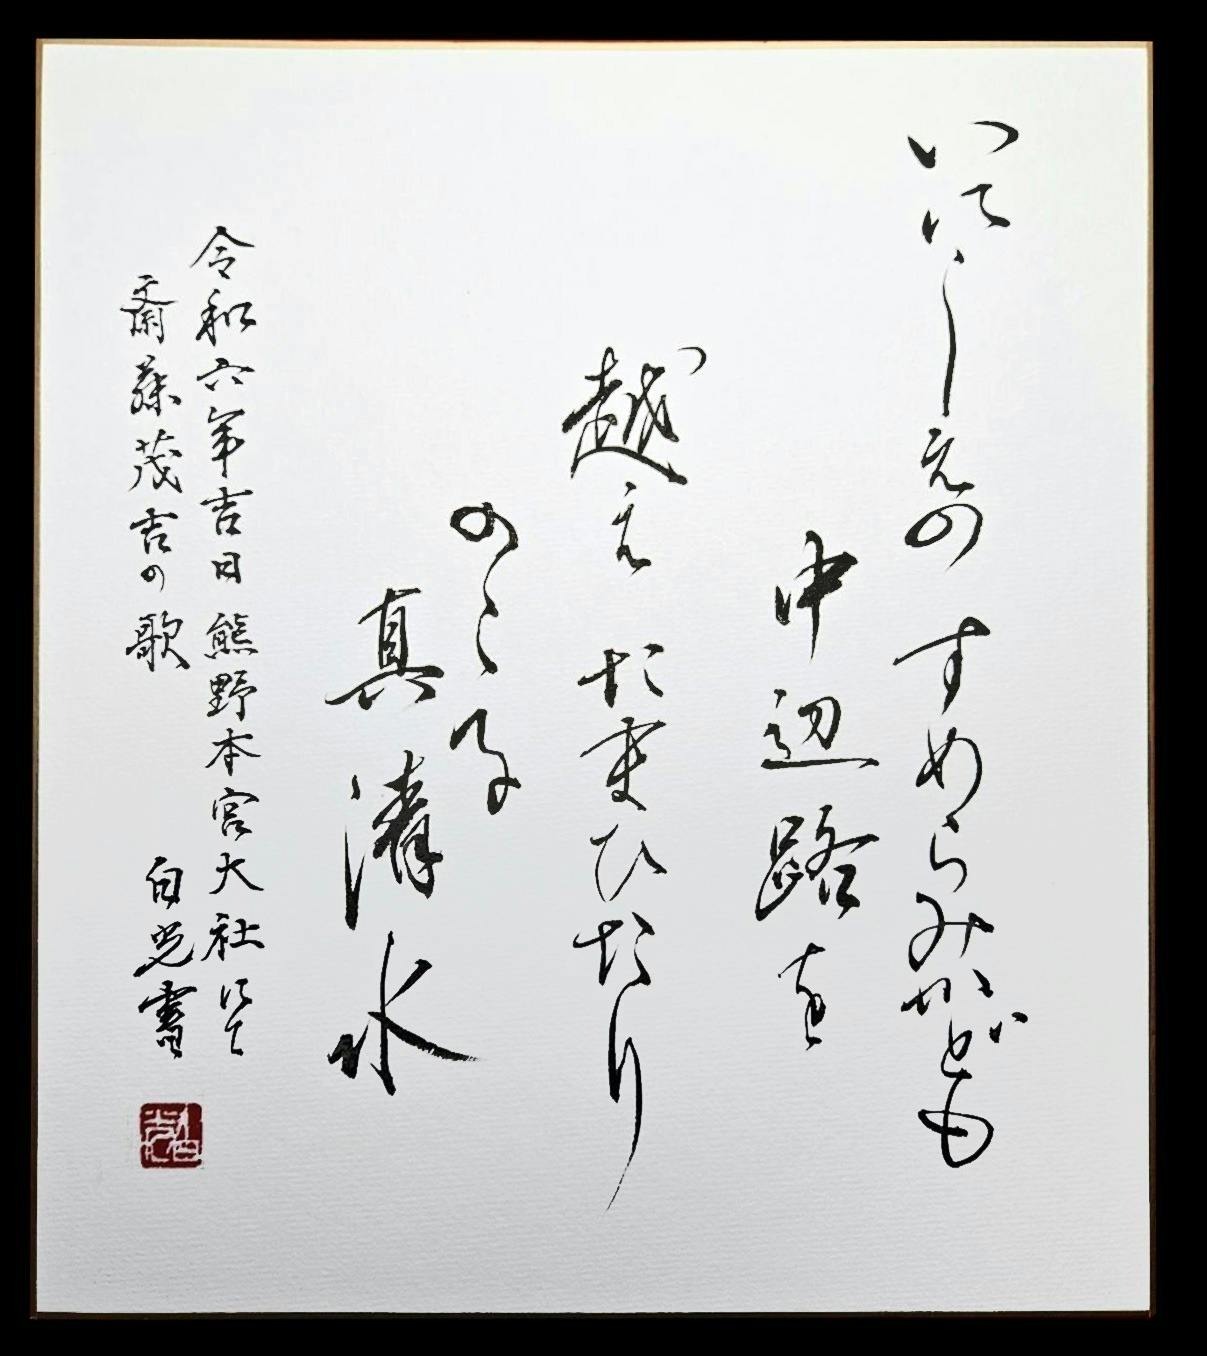 いにしえの すめらみかども
中辺路を
越え たまひたり
のこる
真清水
令和六年吉日 熊野本宮大社にて
斎藤茂吉の歌
白光書